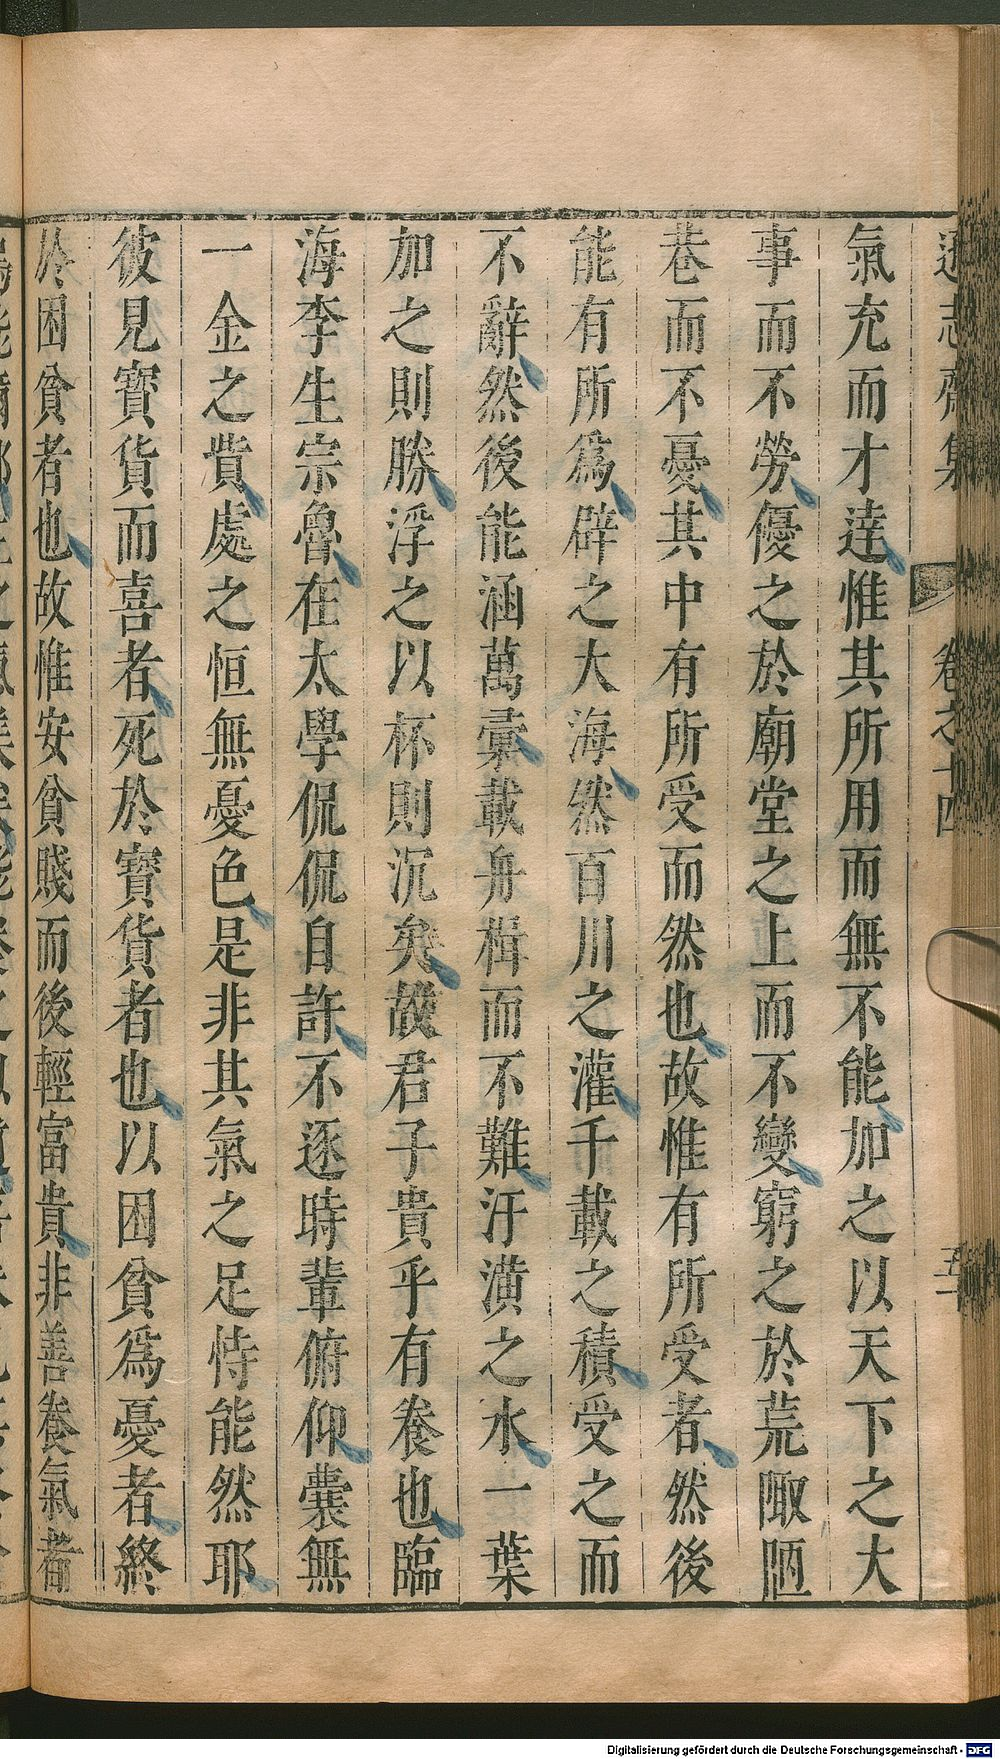 遜志齋集 卷之十四 五
氣充而才達惟其所用而無不能加之以天下之大
事而不勞優之於廟堂之上而不變窮之於荒陬陋
巷而不憂其中有所受而然也故惟有所受者然後
能有所爲辟之大海然百川之灌千載之積受之而
不辭然後能涵萬彙載舟楫而不難汙潢之水一葉
加之則勝浮之以杯則沉矣故君子貴乎有養也臨
海李生宗魯在太學侃侃自許不逐時輩俯仰囊無
一金之貲處之恒無憂色是非其氣之足恃能然耶
彼見寶貨而喜者死於寶貨者也以困貧爲憂者終
於困貧者也故惟安貧賤而後輕富貴非善養氣者
Digitalisierung gefördert durch die Deutsche Forschungsgemeinschaft - DFG